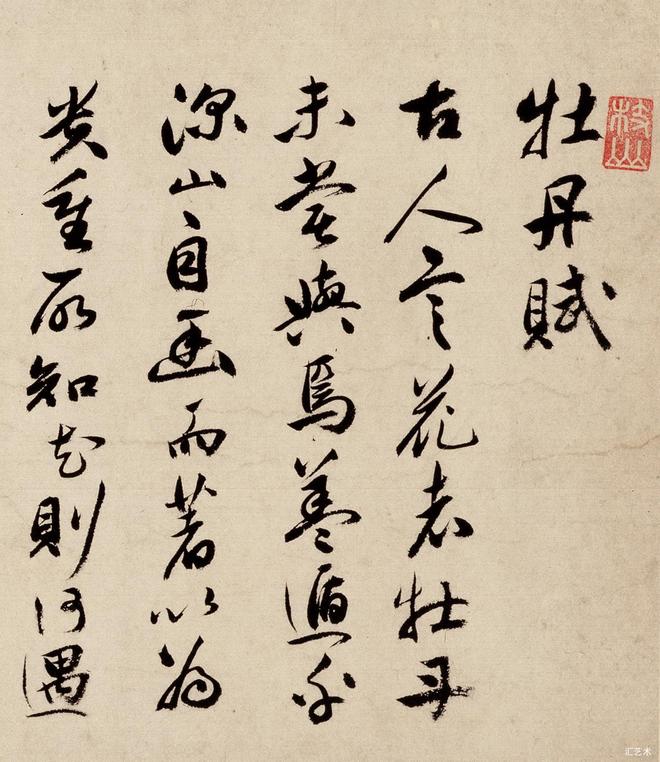 枝山
牡丹賦
古人言花者牡丹
未嘗與焉蓋遁乎
深山自幽而著以為
貴重所知花則何遇
汇艺术